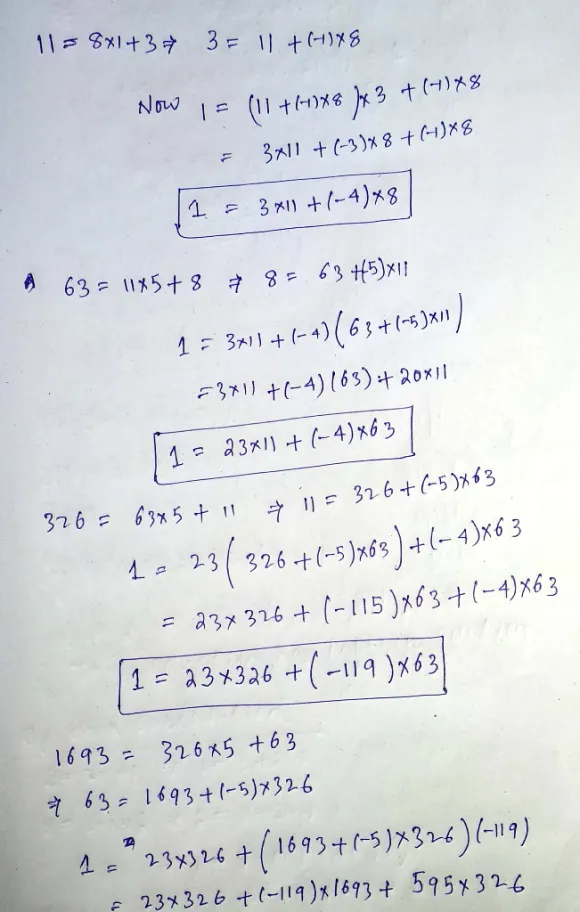 11 = 8×1+3 ⇒ 3 = 11 +(-1)×8
Now 1 = (11 +(-1)×8 )×3 +(-1)×8
= 3×11 +(-3)×8 +(-1)×8
1 = 3×11 +(-4)×8
63 = 11×5+8 ⇒ 8 = 63 +(-5)×11
1 = 3×11 +(-4)(63 +(-5)×11)
=3×11 +(-4)(63) + 20×11
1 = 23×11 + (-4)×63
326 = 63×5 + 11 ⇒ 11 = 326 +(-5)×63
1 = 23(326 +(-5)×63) +(-4)×63
= 23×326 + (-115)×63 +(-4)×63
1 = 23×326 +(-119)×63
1693 = 326×5 +63
⇒ 63 = 1693 +(-5)×326
1 = 23×326 +(1693 +(-5)×326)(-119)
= 23×326 +(-119)×1693 + 595×326